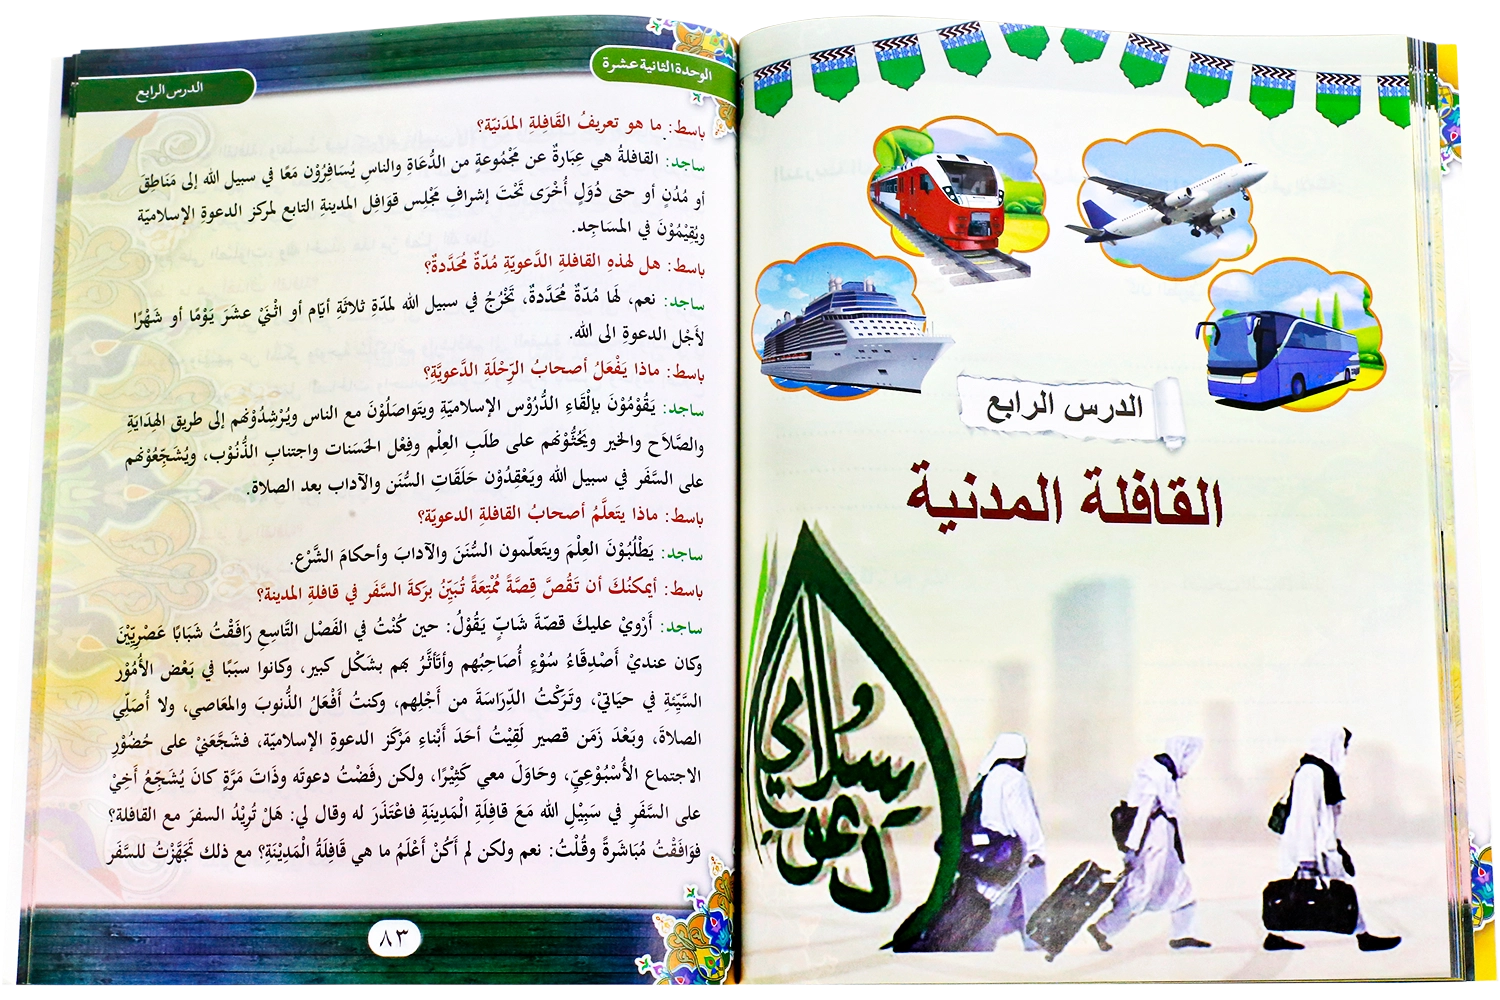 الدرس الرابع
القافلة المدنية
دعوت
سلامي
الوحدة الثانية عشرة
الدرس الرابع
باسط: ما هو تعريفُ القَافِلةِ المدَنيّة؟
ساجد: القافلةُ هي عِبَارةٌ عن مَجْمُوعةٍ من الدُّعَاةِ والناسِ يُسَافِرُوْن مَعًا في سبيل الله إلى مَنَاطِقَ
أو مُدُنٍ أو حتى دُوَلٍ أُخْرَى تَحْتَ إشرافِ مَجْلِس قوَافِل المدينةِ التابع لمركز الدعوةِ الإسلاميّة
ويُقِيْمُوْنَ في المسَاجِد.
باسط: هل لهذهِ القافلةِ الدَّعويّةِ مُدّةٌ مُحَدَّدةٌ؟
ساجد: نعم، لَها مُدّةٌ مُحَدَّدةٌ، تَخْرُجُ في سبيل الله لمدّةِ ثلاثَةِ أيّام أو اثْنَيْ عشَرَ يَوْمًا أو شَهْرًا
لأَجْل الدعوةِ الى الله.
باسط: ماذا يَفْعَلُ أصحابُ الرِّحْلَةِ الدَّعويَّةِ؟
ساجد: يَقُوْمُوْنَ بإلْقَاءِ الدُّرُوْس الإسلاميّةِ ويَتواصَلُوْنَ مع الناس ويُرْشِدُوْنهم إلى طريق الهِدَايَةِ
والصَّلاَح والخير ويَحُثُّوْنهم على طلَبِ العِلْم وفِعْل الحَسَنات واجتنابِ الذُّنُوْب، ويُشَجِّعُوْنهم
على السَّفَر في سبيل الله ويَعْقِدُوْن حَلَقَاتِ السُّنَن والآداب بعد الصلاة.
باسط: ماذا يتَعلَّمُ أصحابُ القافلةِ الدعويّة؟
ساجد: يَطْلُبُوْنَ العِلْمَ ويتَعلّمون السُّنَنَ والآدابَ وأحكامَ الشَّرْع.
باسط: أيمكنُكَ أن تَقُصَّ قِصَّةً مُمْتِعَةً تُبَيِّنُ برَكةَ السَّفَر في قافلةِ المدينة؟
ساجد: أَرْويْ عليكَ قصّةَ شَابٍّ يَقُوْلُ: حين كُنْتُ في الفَصْل التَّاسِعِ رَافَقْتُ شَبَابًا عَصْريِّيْنَ
وكان عنديْ أَصْدِقَاءُ سُوْءٍ أُصَاحِبُهم وأتأثَّرُ بهم بشَكْل كبير، وكانوا سبَبًا في بَعْض الأُمُوْر
السَّيِّئةِ في حيَاتيْ، وتَرَكْتُ الدِّرَاسَةَ من أَجْلِهم، وكنتُ أَفْعَلُ الذُّنوبَ والمعَاصي، ولا أُصَلّي
الصلاةَ، وبَعْدَ زَمَن قصير لَقِيْتُ أحَدَ أَبْناءِ مَرْكَز الدعوةِ الإسلاميّة، فشَجَّعَنيْ على حُضُوْر
الاجتماع الأُسْبُوْعِيّ، وحَاوَلَ معي كَثِيْرًا، ولكن رفَضْتُ دعوتَه وذَاتَ مَرَّةٍ كانَ يُشَجِّعُ أَخِيْ
على السَّفَر في سَبِيْلِ الله مَعَ قافِلَةِ الْمَدِينَةِ فاعْتَذَرَ له وقال لي: هَلْ تُرِيْدُ السفرَ مع القافلة؟
فوَافَقْتُ مُبَاشَرةً وقُلْتُ: نعم ولكن لم أَكُنْ أَعْلَمُ ما هي قَافِلَةُ الْمَدِيْنَةِ؟ مع ذلك تَجَهَّزْتُ للسَّفَر
٨٣